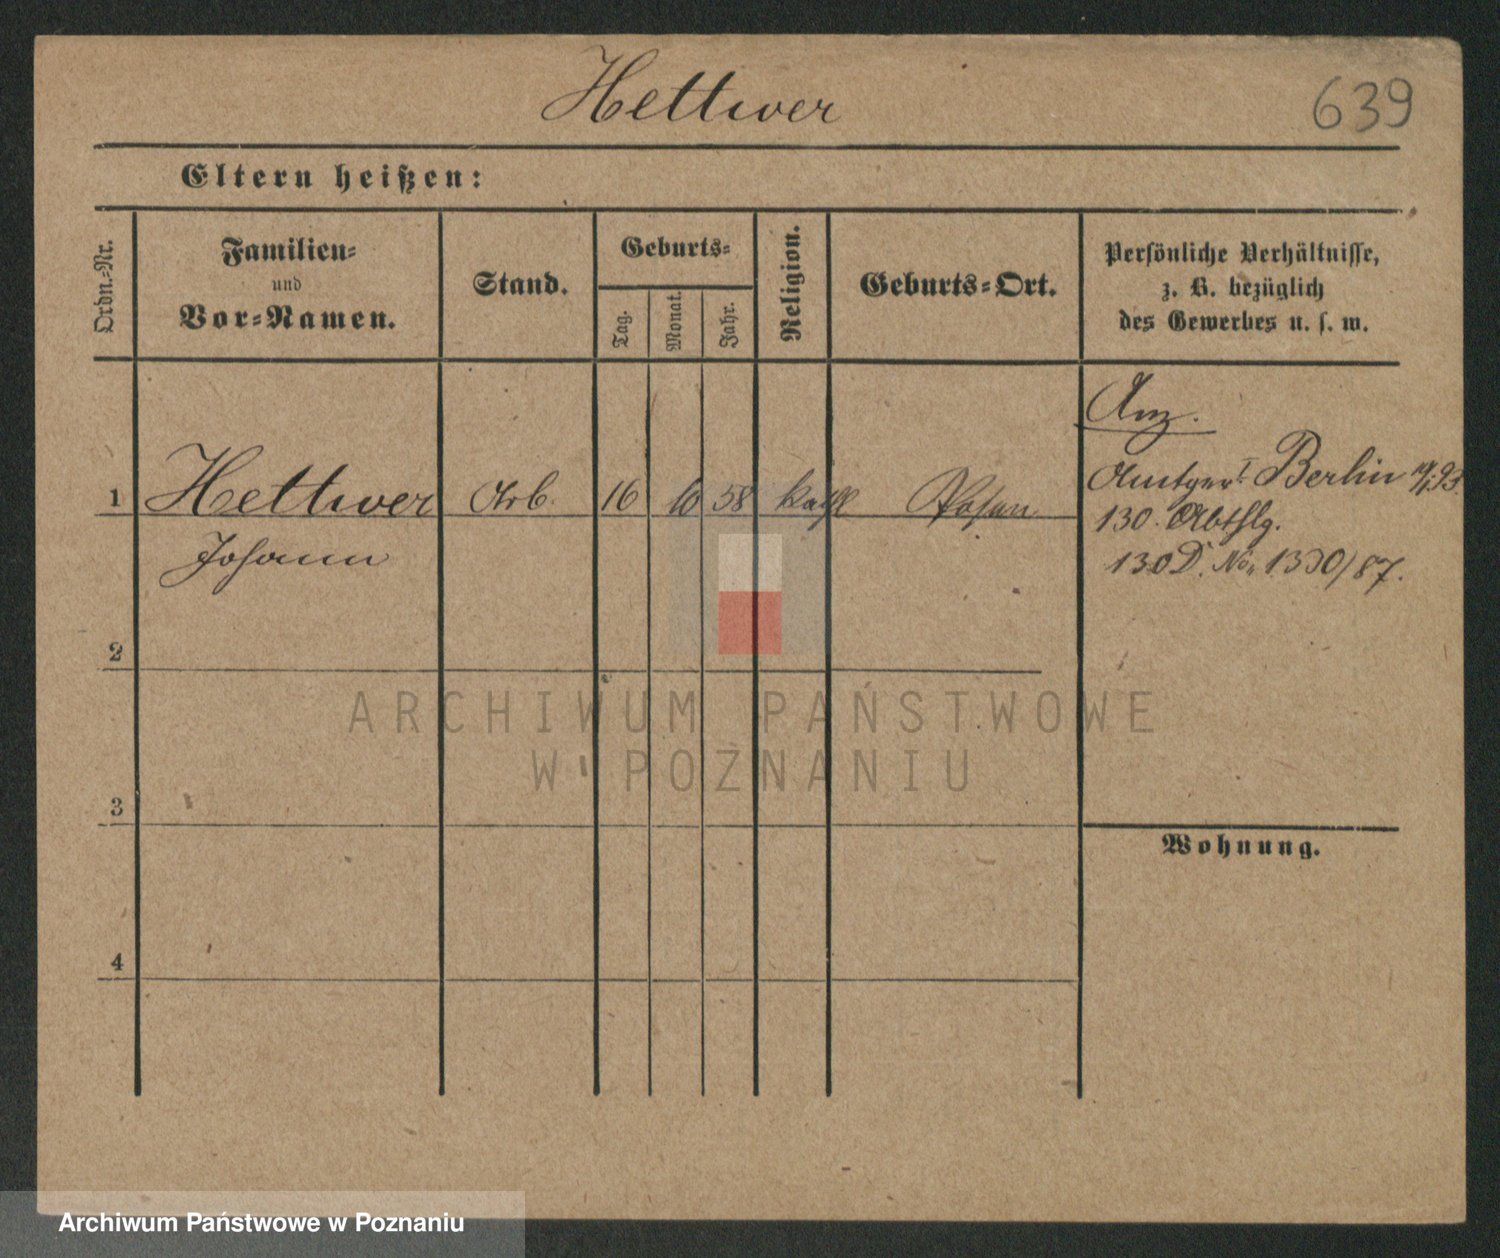 Hettwer
639
Eltern heißen:
Ordn.-Nr.
Familien-
und
Vor-Namen.
Stand.
Geburts-
Tag.
Monat.
Jahr.
Religion.
Geburts-Ort.
Persönliche Verhältnisse,
z. B. bezüglich
des Gewerbes u. s. w.
1
Hettwer
Johann
Arb.
16
10
58
kath
Posen
Anz.
Amtger. I Berlin
130. Abthlg.
130 D. No. 1330/87.
2
3
4
Wohnung.
ARCHIWUM PAŃSTWOWE
W POZNANIU
Archiwum Państwowe w Poznaniu